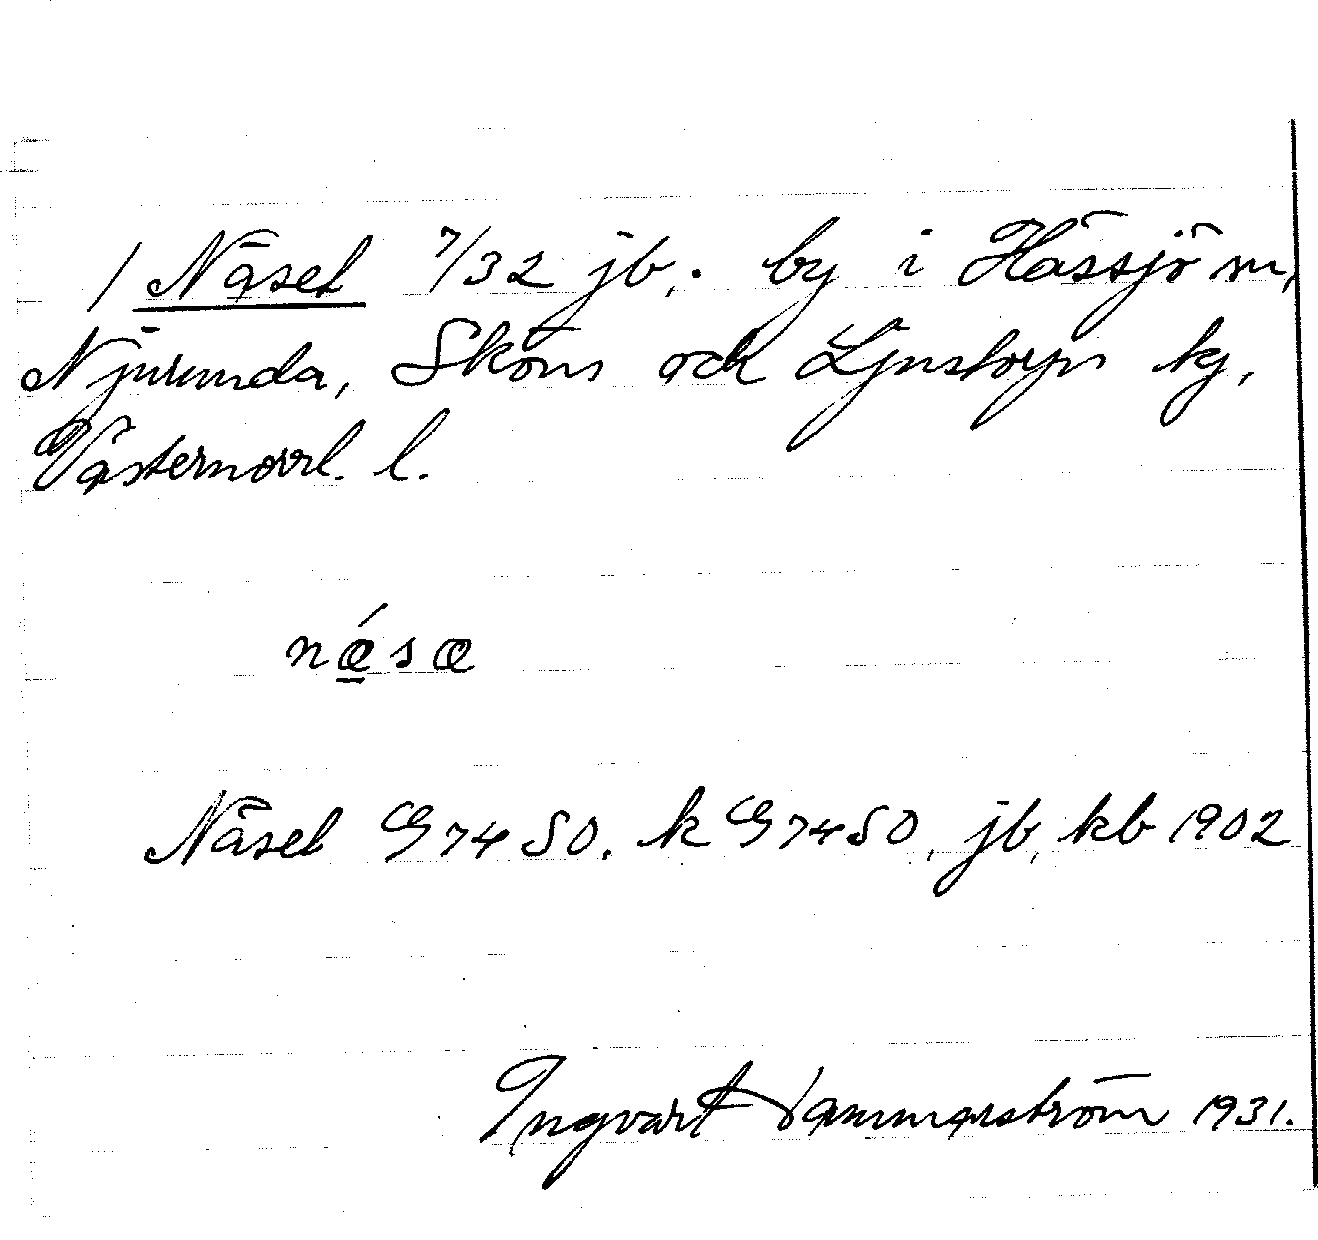 1 Näset 7/32 jb. by i Hässjö m,
Njurunda, Sköns och Ljustorps tg,
Västernorrl. l.
nǽ̲sæ
Näset G 74 SO. k G 74 SO, jb, kb 1902
Ingvart Hammarström 1931.